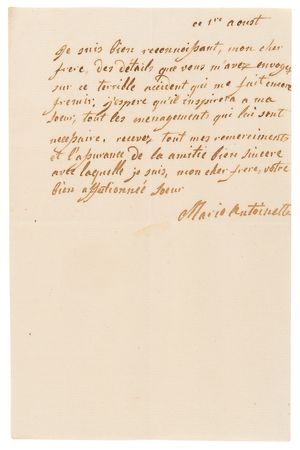 ce 1er aoust
Je suis bien reconnoissant, mon cher
frere, des détails que vous m'avez envoyes
sur ce terrible accident qui me fait encore
fremir, j'espere qu'il inspirera a ma
soeur, tout les menagements qui lui sont
necessaire, recevez tout mes remerciments
et l'assurance de la amitié bien sincere
avec laquelle je suis, mon cher frere, votre
bien affectionnée soeur
Marie Antoinette